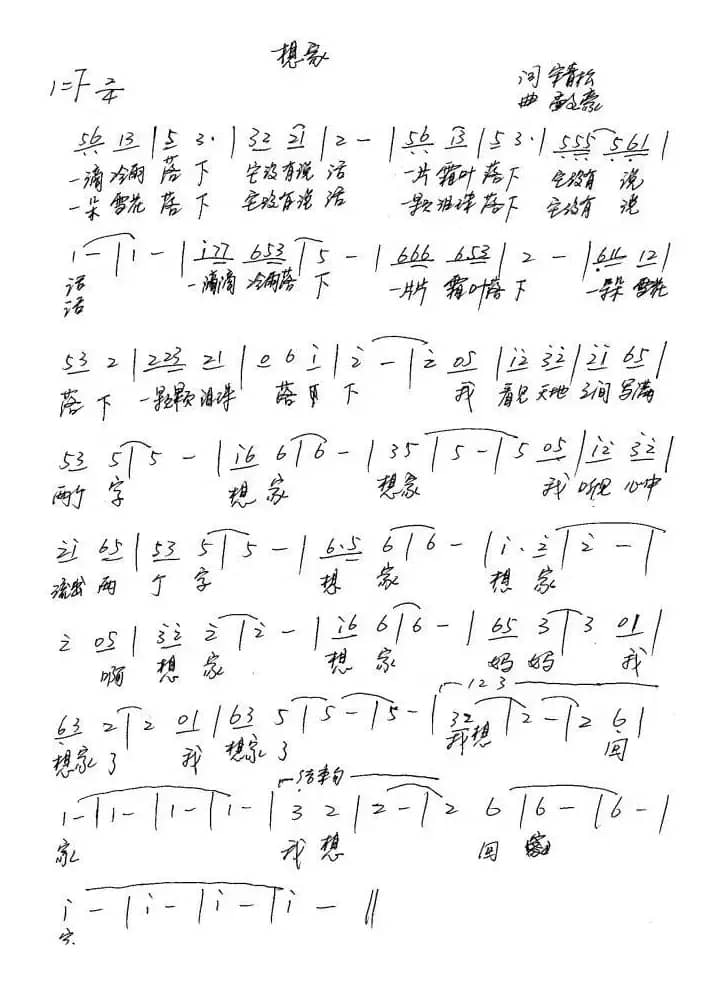 想家
1=F 2/4
词 宋青松
曲
56 13 | 5 3· | 32 21 | 2 - | 56 i3 | 5 3· | 555 561 |
一滴 冷雨 落 下 它没有说 话 一片 霜叶 落下 它没有 说
一朵 雪花 落 下 它没有说 话 一颗 泪珠 落下 它没有 说
1 - | 1 - | i77 653 | 5 - | 666 653 | 2 - | 611 12 |
话 一滴滴 冷雨落 下 一片片 霜叶落 下 一朵朵 雪花
话
53 2 | 223 21 | 0 6 i | 2 - | 2 05 | i2 32 | 2i 65 |
落 下 一颗颗 泪珠 落 下 我 看见 天地 之间 写满
53 5 | 5 - | i6 6 | 6 - | 35 | 5 - | 5 05 | i2 32 |
两个 字 想 家 想家 我 听见 心中
2i 65 | 53 5 | 5 - | 6·5 6 | 6 - | i·2 | 2 - |
流出 两 个 字 想 家 想 家
2 05 | 32 2 | 2 - | i6 6 | 6 - | 65 3 | 3 01 |
啊 想 家 想 家 妈 妈 我
63 2 | 2 01 | 63 5 | 5 - | 5 - | 1 2 3 32 | 2 - | 2 6 |
想家 了 我 想家 了 我想 回
1 - | 1 - | 1 - | 1 - | 结束句 3 2 | 2 - | 2 6 | 6 - | 6 - |
家 我 想 回
i - | i - | i - | i - ||
家